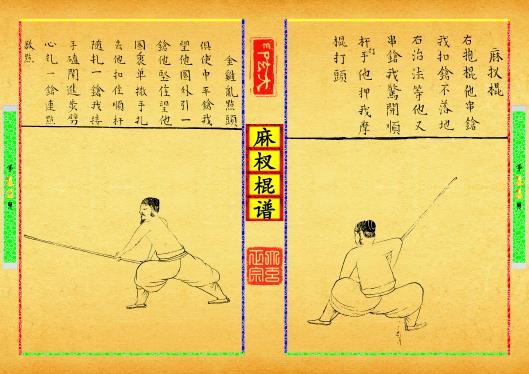 麻杈棍
右拖棍他串鎗
我扣鎗不落地
右治法等他又
串鎗我驚開順
杆手他押我摩
棍打頭
麻杈棍谱
金雞亂點頭
俱使中平鎗我
望他圈外引一
鎗他堅住望他
圈裏单撒手扎
去他扣住順杆
隨扎一鎗我捧
手磕開進步劈
心扎一鎗連點
數點